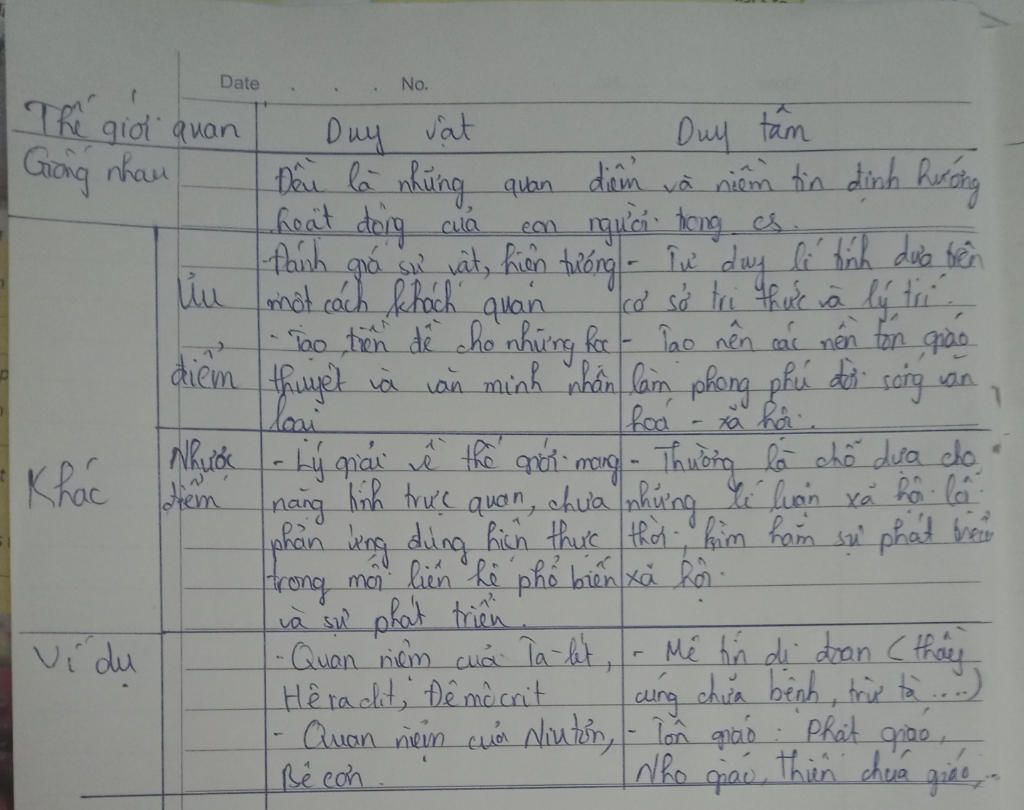 Date . . . No.
Thế giới quan Duy vật Duy tâm
Giống nhau Đều là những quan điểm và niềm tin định hướng
hoạt động của con người trong cs.
- Đánh giá sự vật, hiện tượng - Tư duy lí tính dựa trên
Ưu một cách khách quan cơ sở tri thức và lý trí.
- Tạo tiền đề cho những học - Tạo nên các nền tôn giáo
điểm thuyết và văn minh nhân làm phong phú đời sống văn
loại hoá - xã hội.
Khác Nhược - Lý giải về thế giới mang - Thường là chỗ dựa cho
điểm nặng tính trực quan, chưa những lí luận xã hội lỗi
phản ứng đúng hiện thực thời, kìm hãm sự phát triển
trong mối liên hệ phổ biến xã hội.
và sự phát triển.
Ví dụ - Quan niệm của Ta-lét, - Mê tín dị đoan (thầy
Hêraclit, Đêmôcrit cúng chữa bệnh, trừ tà ....)
- Quan niệm của Niutơn, - Tôn giáo : Phật giáo,
Bêcơn. Nho giáo, thiên chúa giáo,...